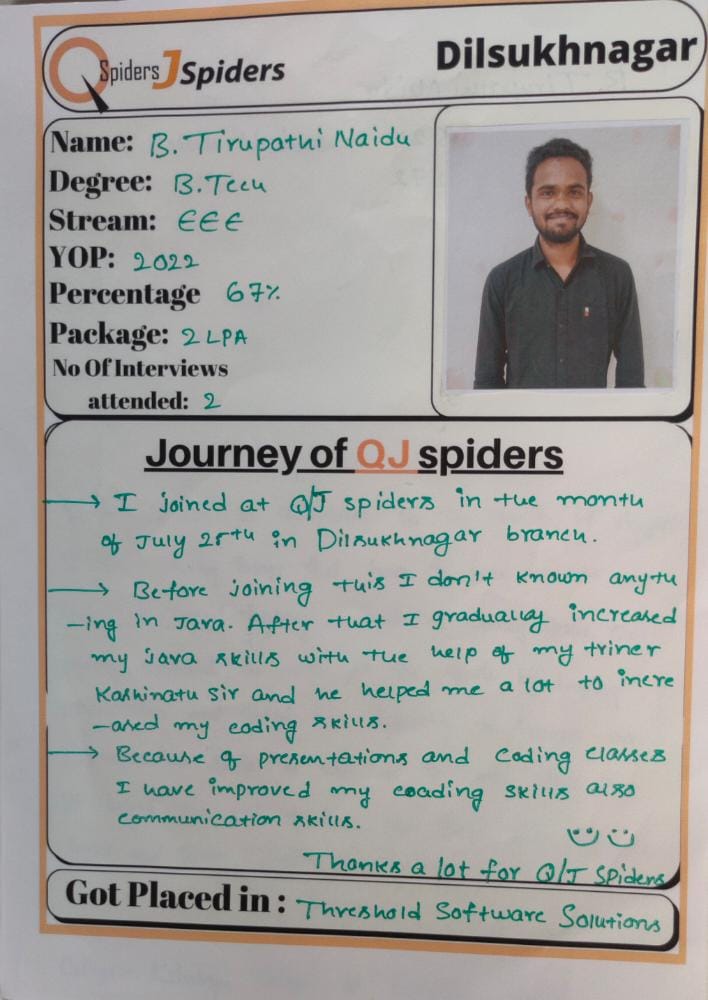 QSpiders JSpiders
Dilsukhnagar
Name: B. Tirupathi Naidu
Degree: B.Tech
Stream: EEE
YOP: 2022
Percentage 67%
Package: 2 LPA
No Of Interviews
attended: 2
Journey of QJ spiders
→ I joined at Q/J spiders in the month
of July 25th in Dilsukhnagar branch.
→ Before joining this I don't known anyth
-ing in Java. After that I gradually increased
my java skills with the help of my triner
Kashinath sir and he helped me a lot to incre
-ased my coding skills.
→ Because of presentations and coding classes
I have improved my coading skills also
communication skills.
Thanks a lot for Q/J Spiders
Got Placed in : Threshold Software Solutions